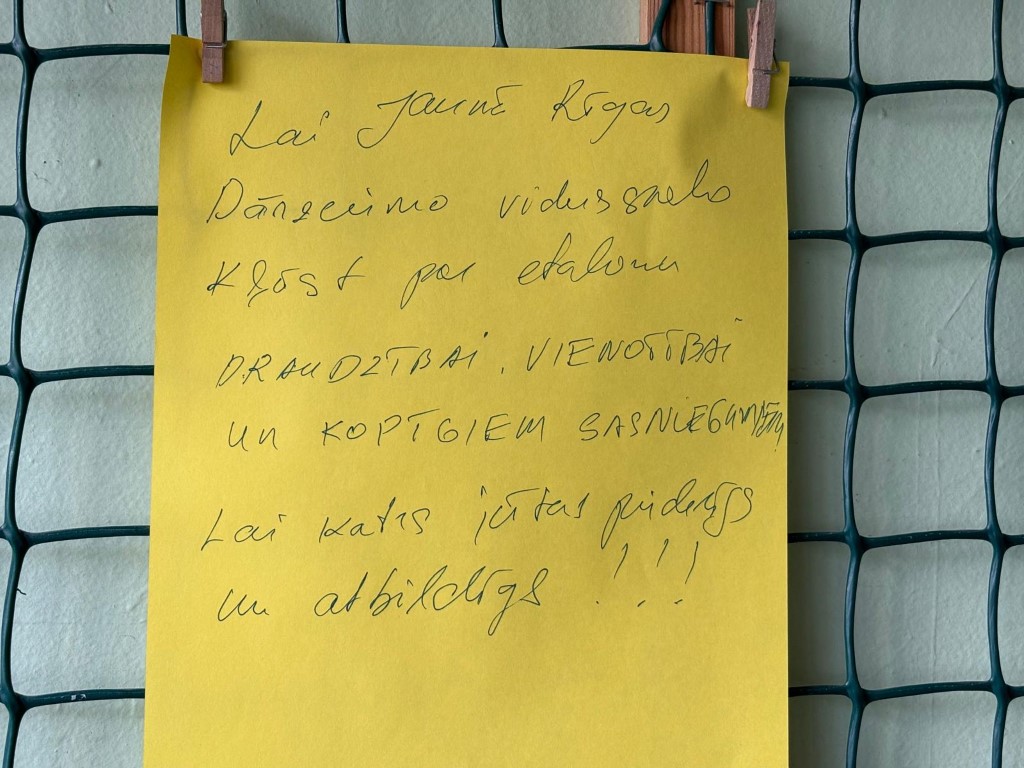 Lai Jaunā Rīgas
Dārzciema vidusskola
Kļūst par etalonu
DRAUDZĪBAI, VIENOTĪBAI
un KOPĪGIEM SASNIEGUMIEM
Lai katrs jūtas piederīgs
un atbildīgs !!!